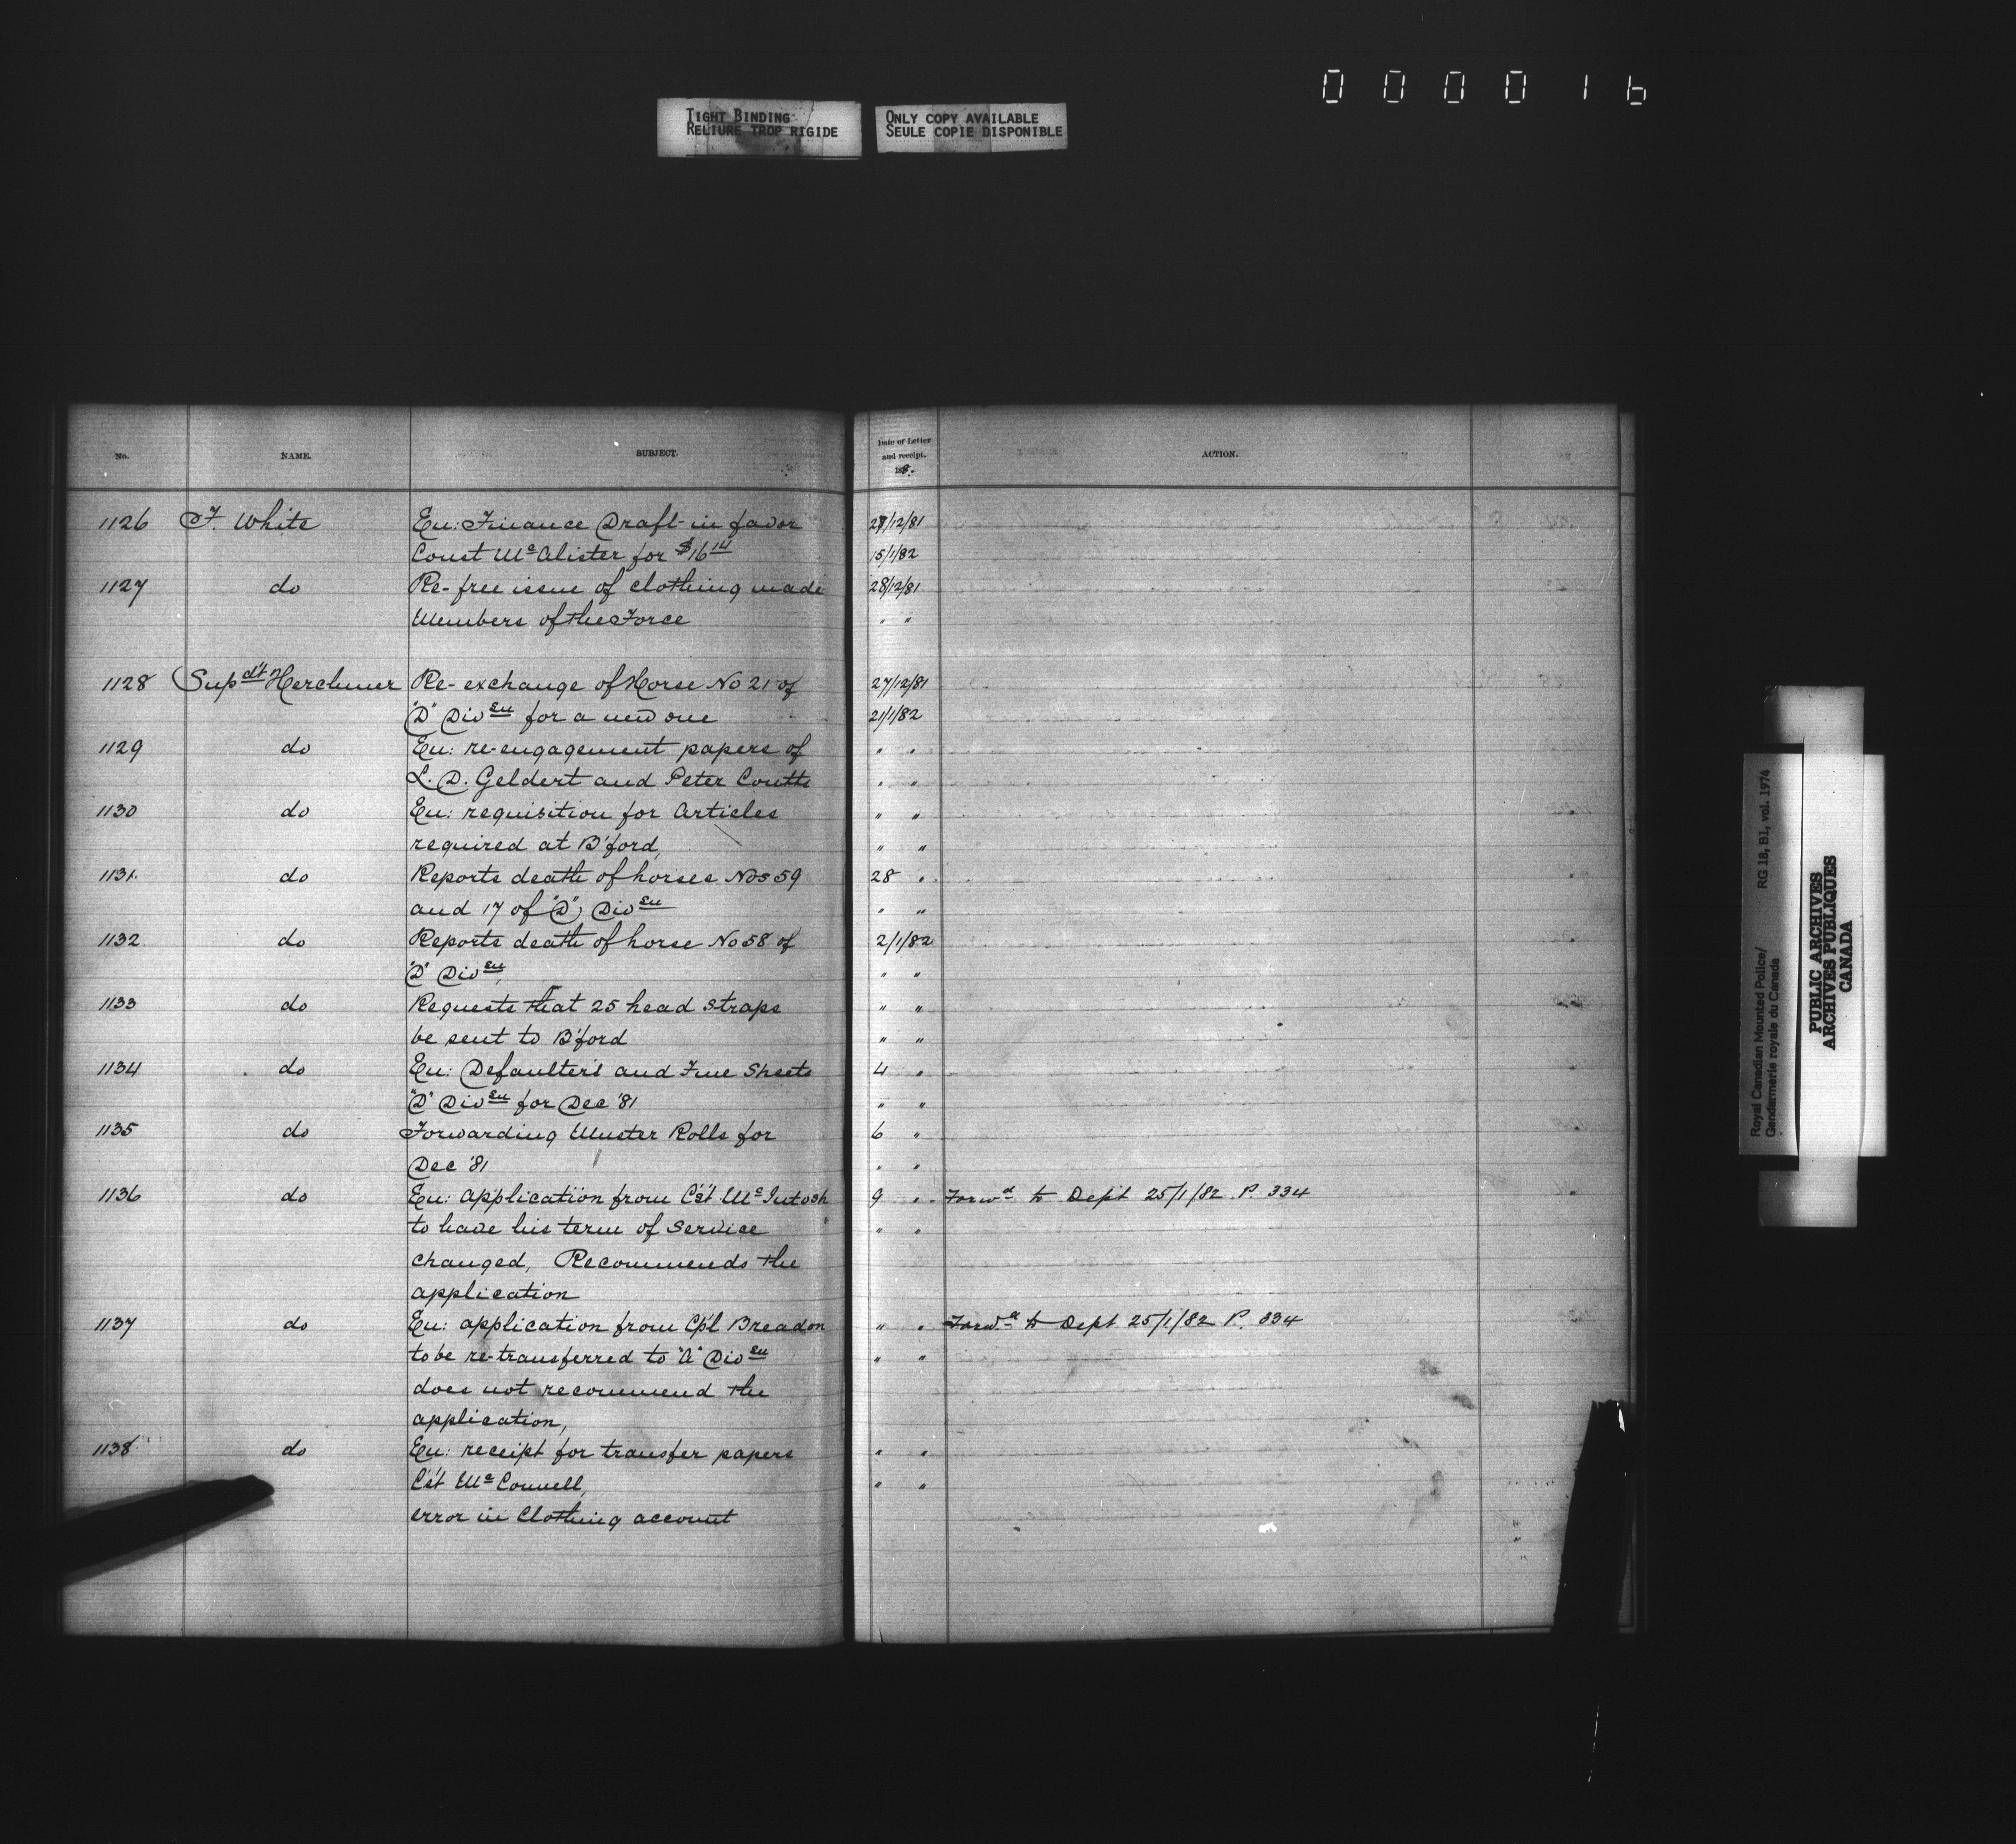 0 0 0 0 1 6
TIGHT BINDING
RELIURE TROP RIGIDE
ONLY COPY AVAILABLE
SEULE COPIE DISPONIBLE
No. NAME. SUBJECT. Date of Letter and receipt. 188 . ACTION.
1126 F. White En: Finance Draft in favor 28/12/81
Const McAlister for $16 14 15/1/82
1127 do Re- free issue of clothing made 28/12/81
Members of the Force " "
1128 Supdt Herchmer Re- exchange of Horse No 21 of 27/12/81
"D" Divsn for a new one 21/1/82
1129 do En: re-engagement papers of " "
L. D. Geldert and Peter Coutts " "
1130 do En: requisition for Articles " "
required at B'ford, " "
1131. do Reports death of horses Nos 59 28 "
and 17 of "D", Divsn " "
1132 do Reports death of horse No 58 of 2/1/82
"D" Divsn, " "
1133 do Requests that 25 head straps " "
be sent to B'ford " "
1134 do En: Defaulters and Fine Sheets 4 "
"D" Divsn for Dec '81 " "
1135 do Forwarding Muster Rolls for 6 "
Dec '81 " "
1136 do En: application from Cst McIntosh 9 " Forwd to Dept 25/1/82 P. 334
to have his term of Service " "
changed, Recommends the
application
1137 do En: application from Cpl Breadon " " Forwd to Dept 25/1/82 P. 334
to be re-transferred to "A" Divsn " "
does not recommend the
application,
1138 do En: receipt for transfer papers " "
Cst McConnell, " "
error in Clothing account
Royal Canadian Mounted Police/ RG 18, B1, vol. 1974
Gendarmerie royale du Canada
PUBLIC ARCHIVES
ARCHIVES PUBLIQUES
CANADA